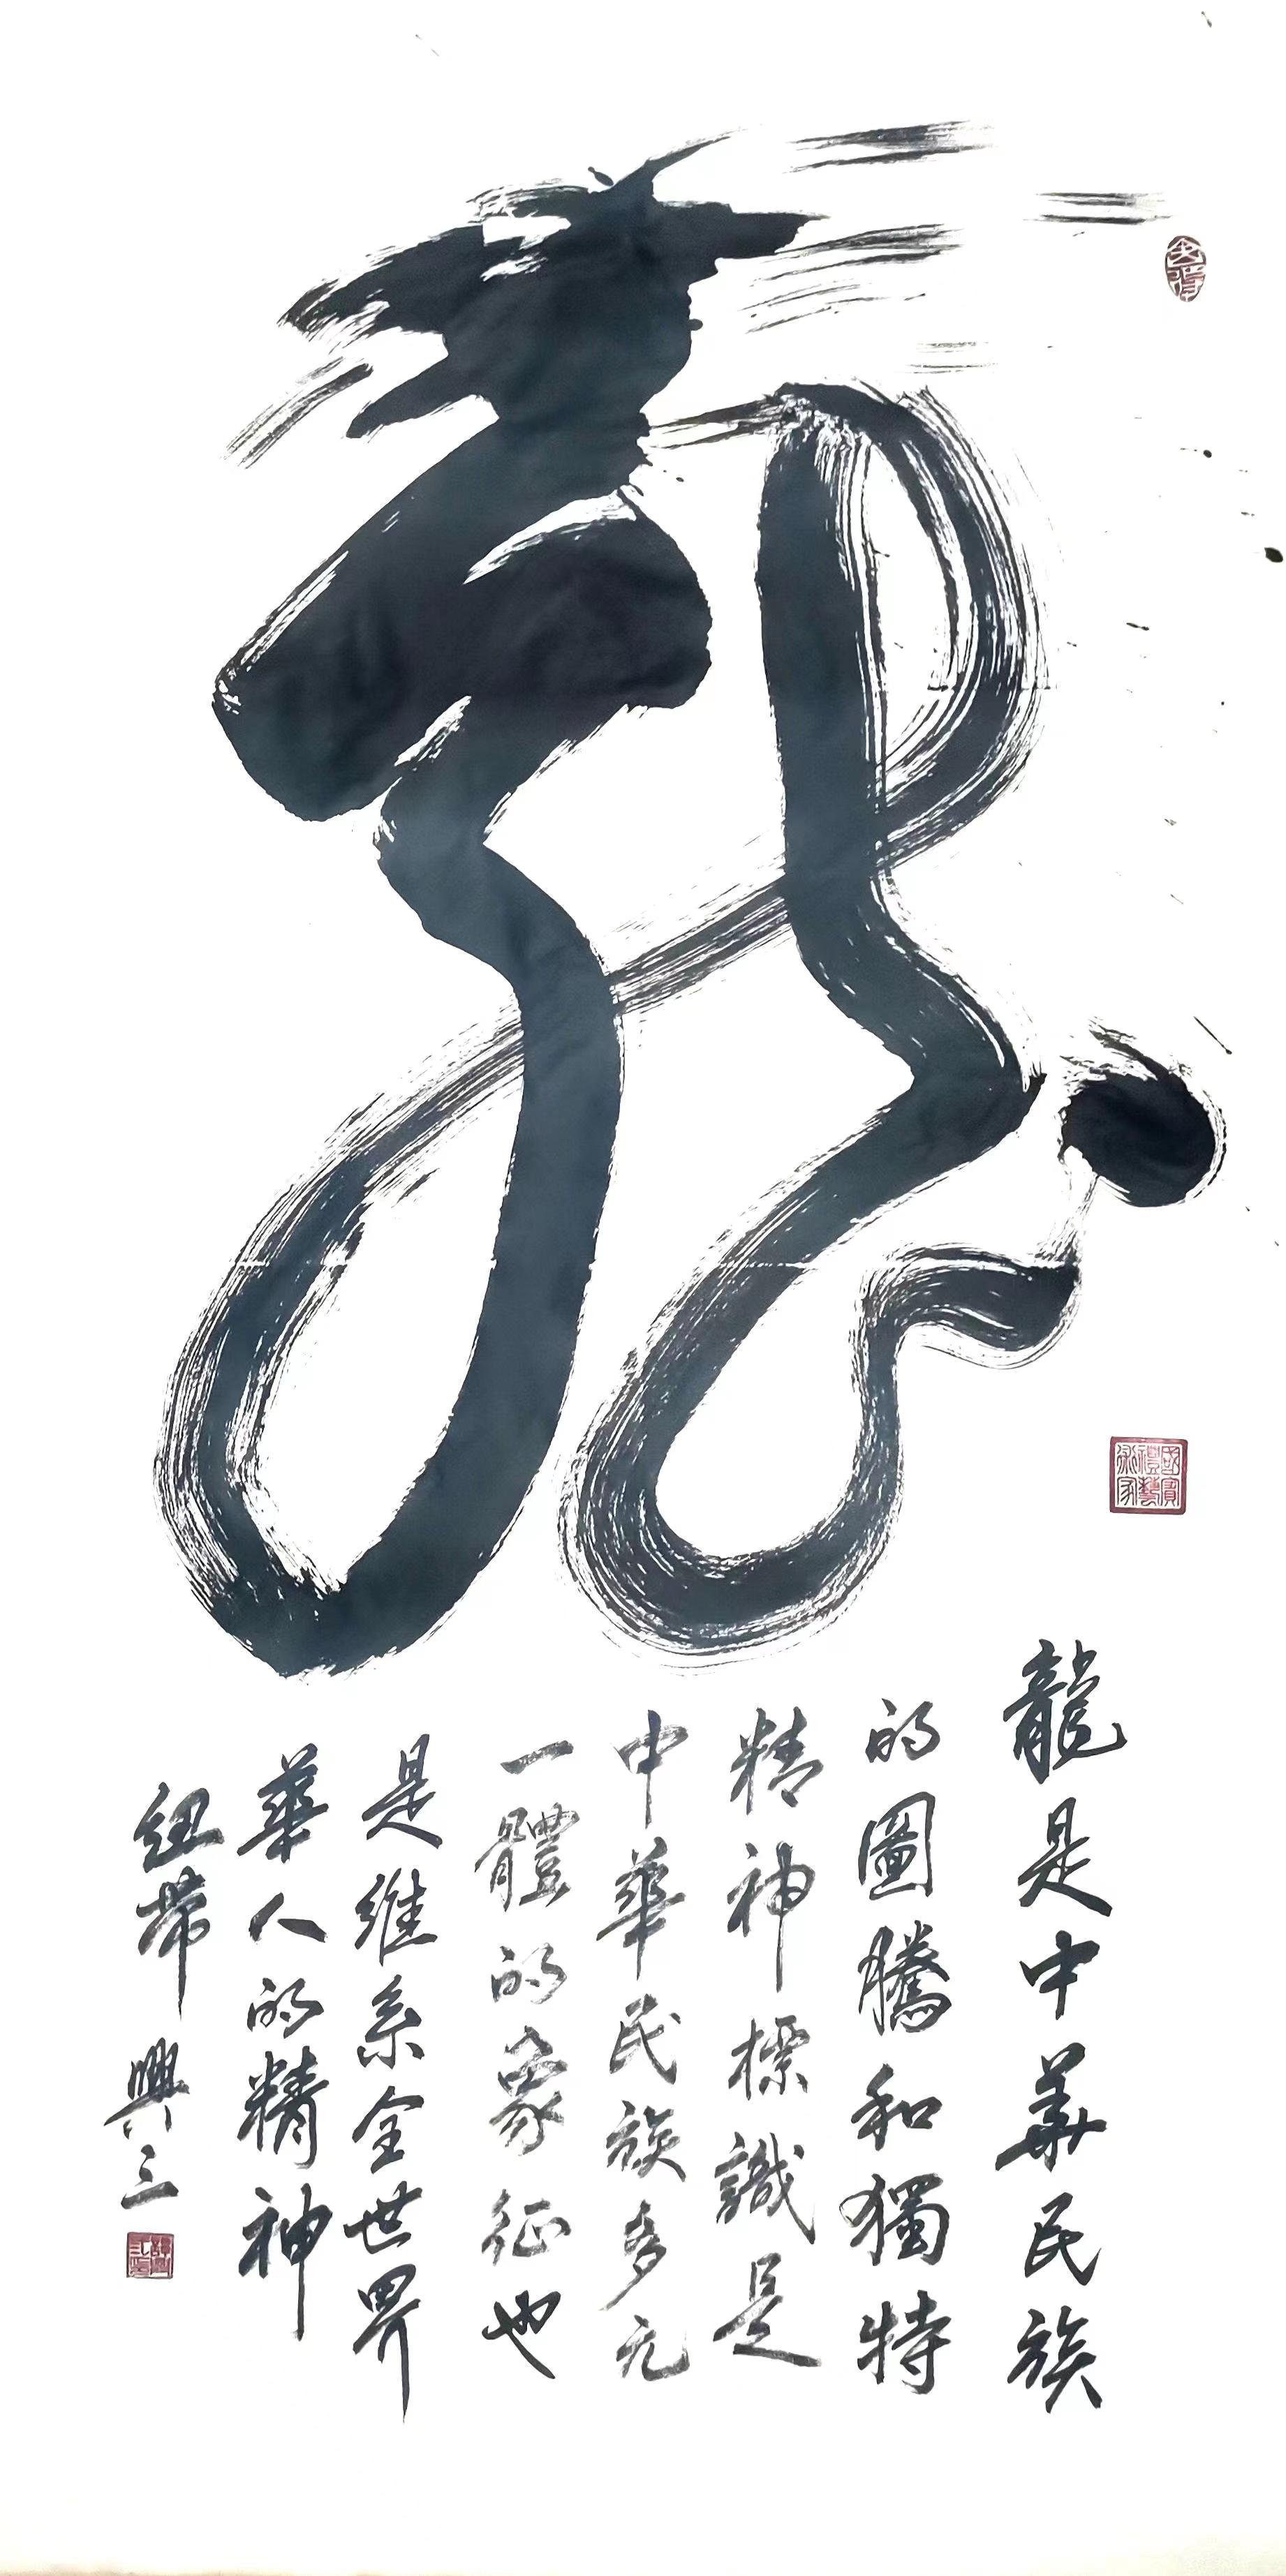 龍
龍是中華民族
的圖騰和獨特
精神標識是
中華民族多元
一體的象征也
是維系全世界
華人的精神
紐帶 興三
國賓禮藝術家